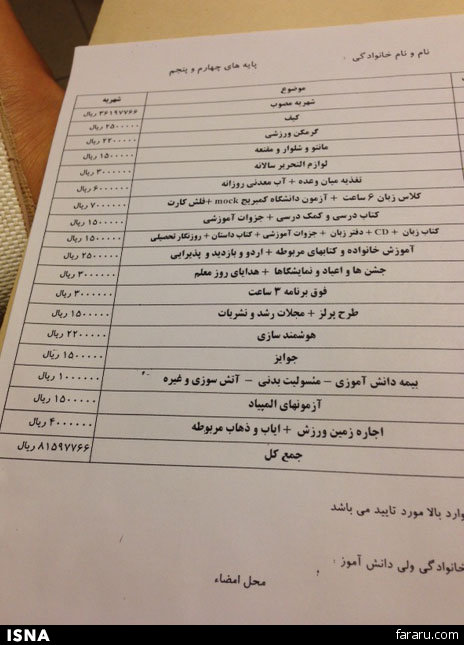 نام و نام خانوادگی :
پایه های چهارم و پنجم
موضوع شهریه
شهریه مصوب ۳۶۱۹۷۷۶۶ ریال
کیف ۲۵۰۰۰۰۰ ریال
گرمکن ورزشی ۲۲۰۰۰۰۰ ریال
مانتو و شلوار و مقنعه ۱۵۰۰۰۰۰ ریال
لوازم التحریر سالانه ۳۰۰۰۰۰۰ ریال
تغذیه میان وعده + آب معدنی روزانه ۶۰۰۰۰۰۰ ریال
کلاس زبان ۶ ساعت + آزمون دانشگاه کمبریج mock +فلش کارت ۷۰۰۰۰۰۰ ریال
کتاب درسی و کمک درسی + جزوات آموزشی ۱۵۰۰۰۰۰ ریال
کتاب زبان + CD + دفتر زبان + جزوات آموزشی + کتاب داستان + روزنگار تحصیلی ۱۵۰۰۰۰۰ ریال
آموزش خانواده و کتابهای مربوطه + اردو و بازدید و پذیرایی ۲۵۰۰۰۰۰ ریال
جشن ها و اعیاد و نمایشگاها + هدایای روز معلم ۳۰۰۰۰۰۰ ریال
فوق برنامه ۳ ساعت ۳۰۰۰۰۰۰ ریال
طرح پرلز + مجلات رشد و نشریات ۱۵۰۰۰۰۰ ریال
هوشمند سازی ۲۲۰۰۰۰۰ ریال
جوایز ۱۵۰۰۰۰۰ ریال
بیمه دانش آموزی – مسولیت بدنی – آتش سوزی و غیره ۱۰۰۰۰۰۰ ریال
آزمونهای المپیاد ۱۵۰۰۰۰۰ ریال
اجاره زمین ورزش + ایاب و ذهاب مربوطه ۴۰۰۰۰۰۰ ریال
جمع کل ۸۱۵۹۷۷۶۶ ریال
وارد بالا مورد تایید می باشد
خانوادگی ولی دانش آموز :
محل امضاء
ISNA
fararu.com